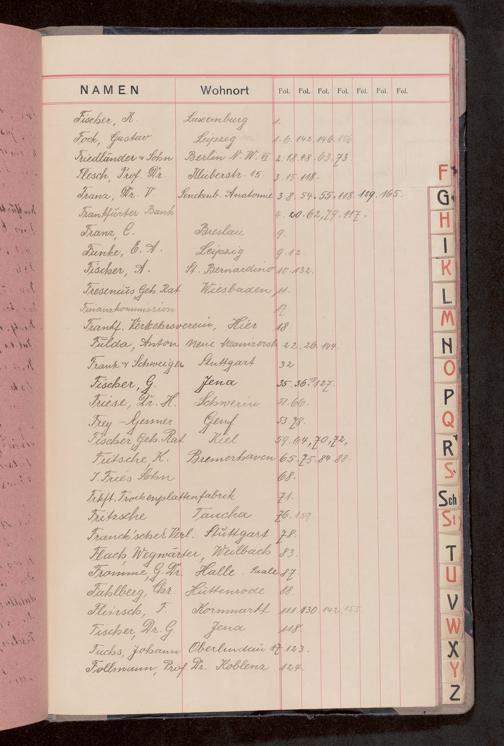 NAMEN Wohnort Fol. Fol. Fol. Fol. Fol. Fol. Fol.
Fischer, K Luxemburg 1.
Fock, Gustav Leipzig 1. 6. 142. 146. 156
Friedländer & Sohn Berlin N. W. 2. 18. 48. 63. 73.
Flesch, Prof. Dr. 15 3. 15. 118.
Franz, Dr. V Senckenb. Anatomie 3 8. 54. 55. 118. 129. 165.
Frankfurter Bank 4. 20. 62, 79. 117.
Franz, C. Breslau 9.
Funke, E. A. Leipzig 9. 12.
Fischer, A. St. Bernardino 10. 132.
Fresenius Geh. Rat Wiesbaden 11.
Finanzkommission 17
Frankf. Verkehrsverein, Hier 18
Fulda, Anton Neue 22. 26. 144.
Frank & Schweiger Stuttgart 32
Fischer, G. Jena 35. 36. 127.
Friese, Dr. H. Schwerin 51. 66.
Frey-Gessner Genf 53. 78.
Fischer Geh. Rat Kiel 59. 64, 70, 72,
Fritsche K. Bremerhaven 65. 75. 84. 88.
J. Fries Sohn 68.
Frkft. Trockenplattenfabrik 71.
Fritzsche Taucha 76. 159
Franck'scher Verl. Stuttgart 78.
Flach, Wegwärter, Weilbach 83.
Fromme, G. Dr. Halle Saale 87
Fahlberg, Chr Hüttenrode 88.
Fleirsch, F. Kornmarkt 111. 130. 142. 155.
Fischer, Dr. G Jena 118.
Fuchs, Johann Oberlindau 17 123.
Follmann, Prof Dr. Koblenz 124.
F
G
H
I
K
L
M
N
O
P
Q
R
S
Sch
St
T
U
V
W
X
Y
Z